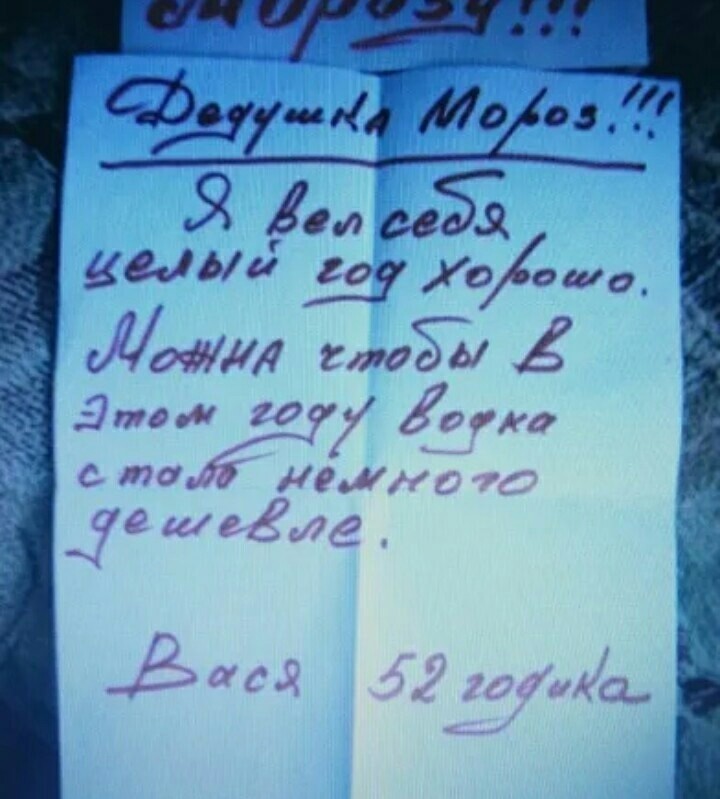 Морозу!!!
Дедушка Мороз!!!
Я вел себя
целый год хорошо.
Можна чтобы в
этом году водка
стала немного
дешевле.
Вася 52 годика